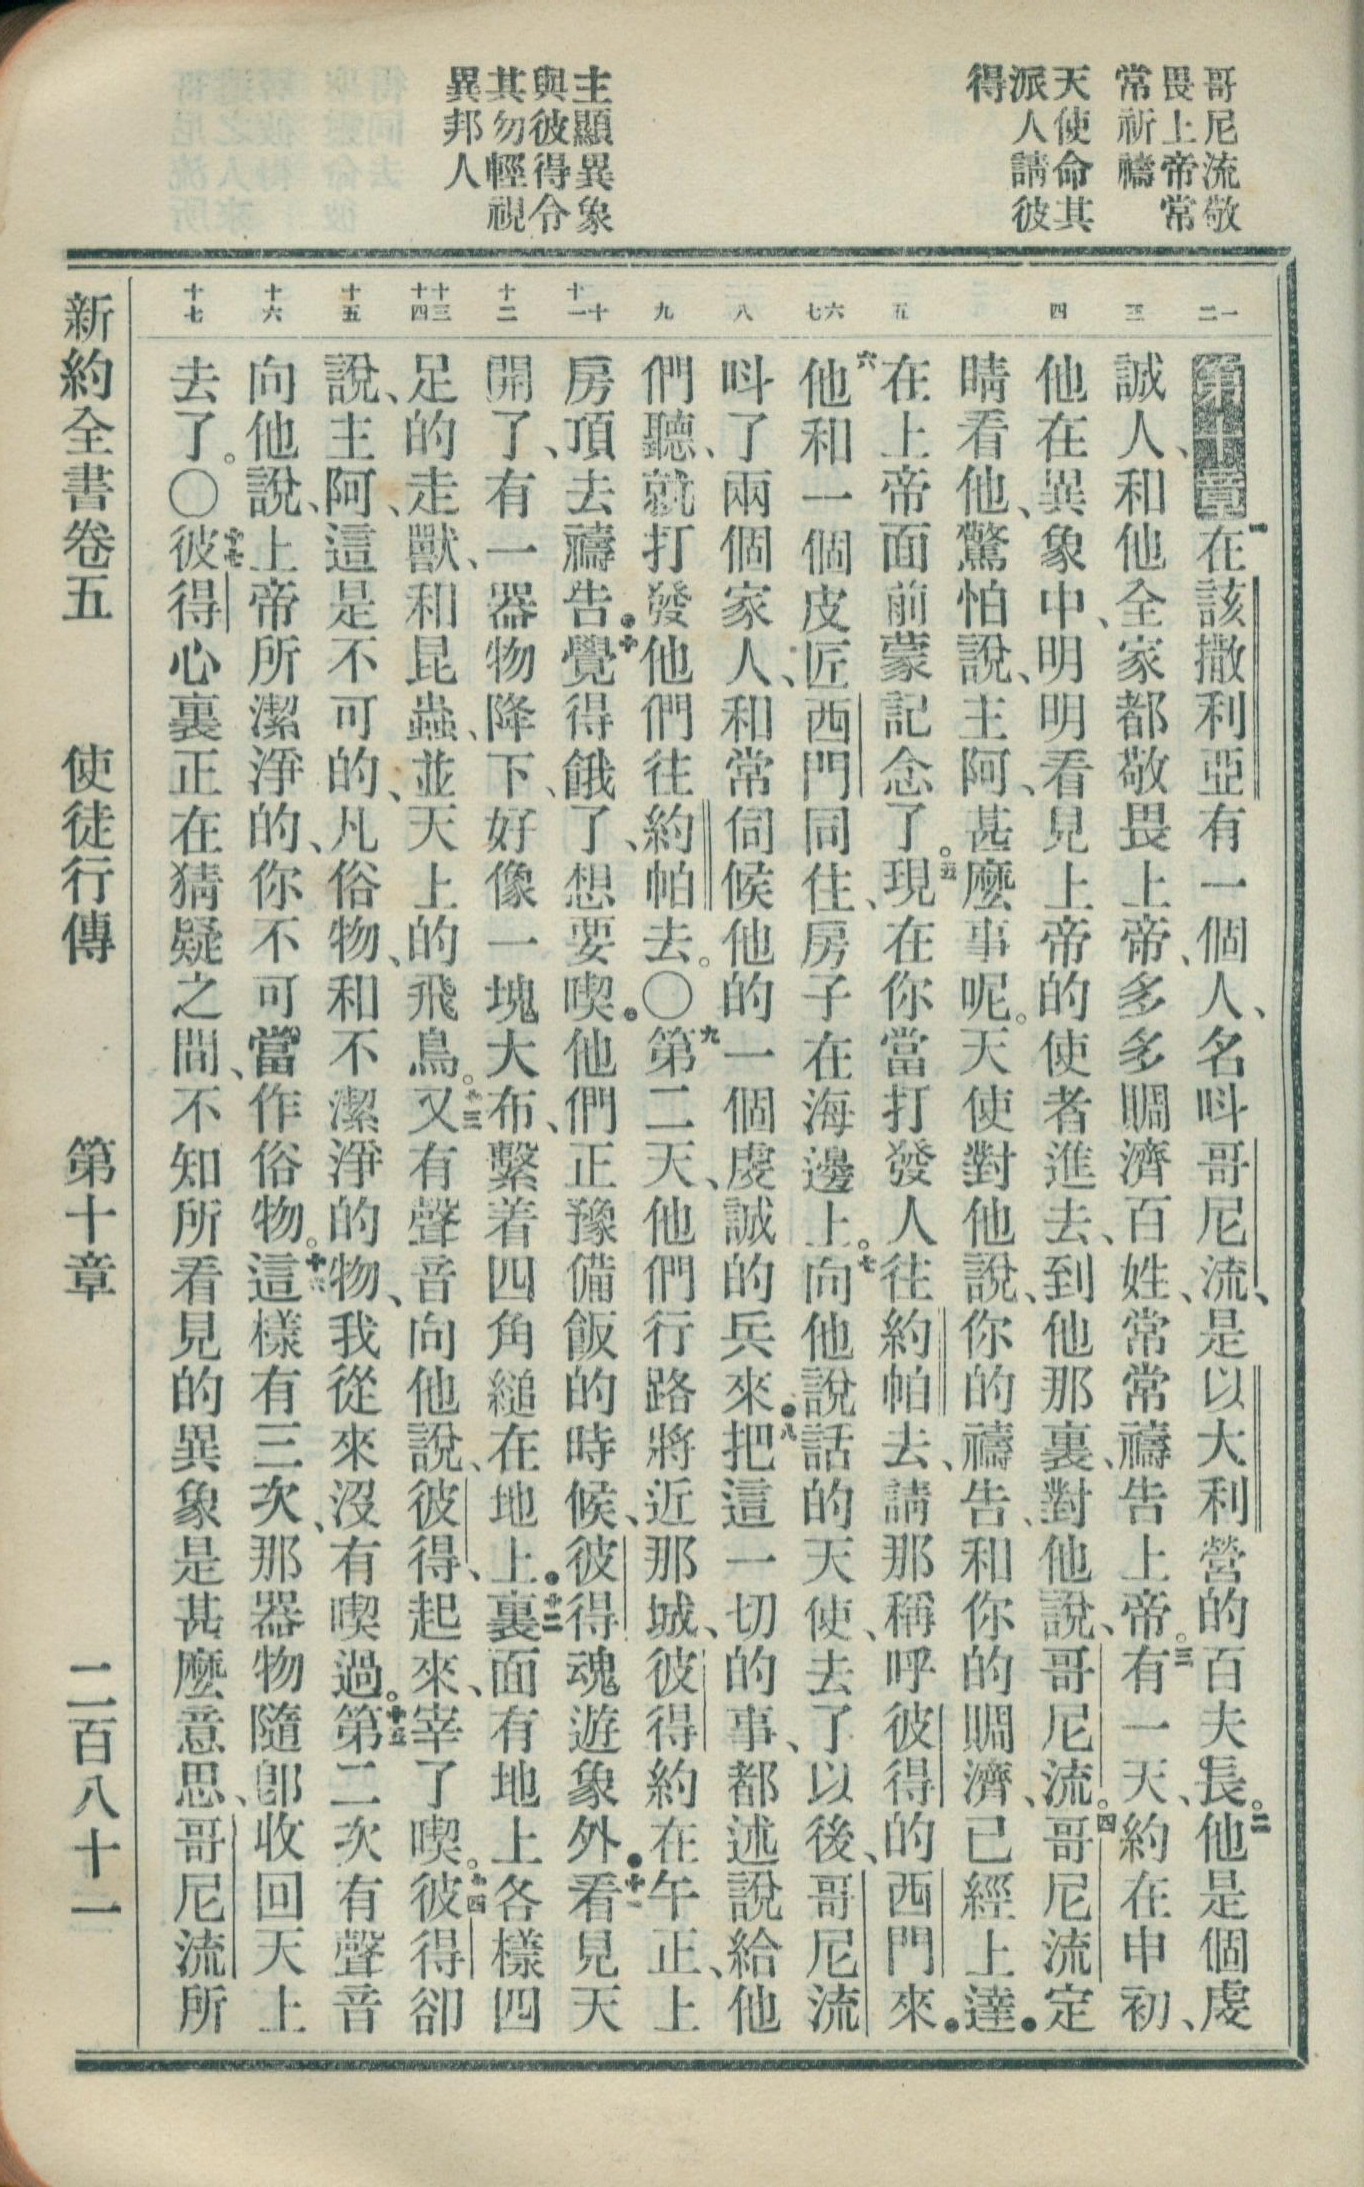 哥尼流敬
畏上帝常
常祈禱
天使命其
派人請彼
得
主顯異象
與彼得令
其勿輕視
異邦人
一二
三
四
五
六七
八
九
十十一
十二
十三十四
十五
十六
十七
第十章一在該撒利亞有一個人、名呌哥尼流、是以大利營的百夫長。二他是個虔
誠人、和他全家都敬畏上帝、多多賙濟百姓、常常禱告上帝。三有一天、約在申初、
他在異象中、明明看見上帝的使者進去、到他那裏、對他說、哥尼流。四哥尼流定
睛看他、驚怕說、主阿、甚麼事呢。天使對他說、你的禱告、和你的賙濟、已經上達．
在上帝面前蒙記念了。五現在你當打發人往約帕去、請那稱呼彼得的西門來．
六他和一個皮匠西門同住、房子在海邊上。七向他說話的天使、去了以後、哥尼流
呌了兩個家人、和常伺候他的一個虔誠的兵來．八把這一切的事、都述說給他
們聽、就打發他們往約帕去。〇九第二天、他們行路將近那城、彼得約在午正、上
房頂去禱告．十覺得餓了、想要喫．他們正豫備飯的時候、彼得魂遊象外．十一看見天
開了、有一器物降下、好像一塊大布、繫着四角縋在地上．十二裏面有地上各樣四
足的走獸、和昆蟲、並天上的飛鳥。十三又有聲音向他說、彼得、起來、宰了喫。十四彼得卻
說、主阿、這是不可的、凡俗物、和不潔淨的物、我從來沒有喫過。十五第二次有聲音
向他說、上帝所潔淨的、你不可當作俗物。十六這樣有三次、那器物隨卽收回天上
去了。〇十七彼得心裏正在猜疑之間、不知所看見的異象是甚麼意思、哥尼流所
新約全書卷五　使徒行傳　第十章　二百八十一